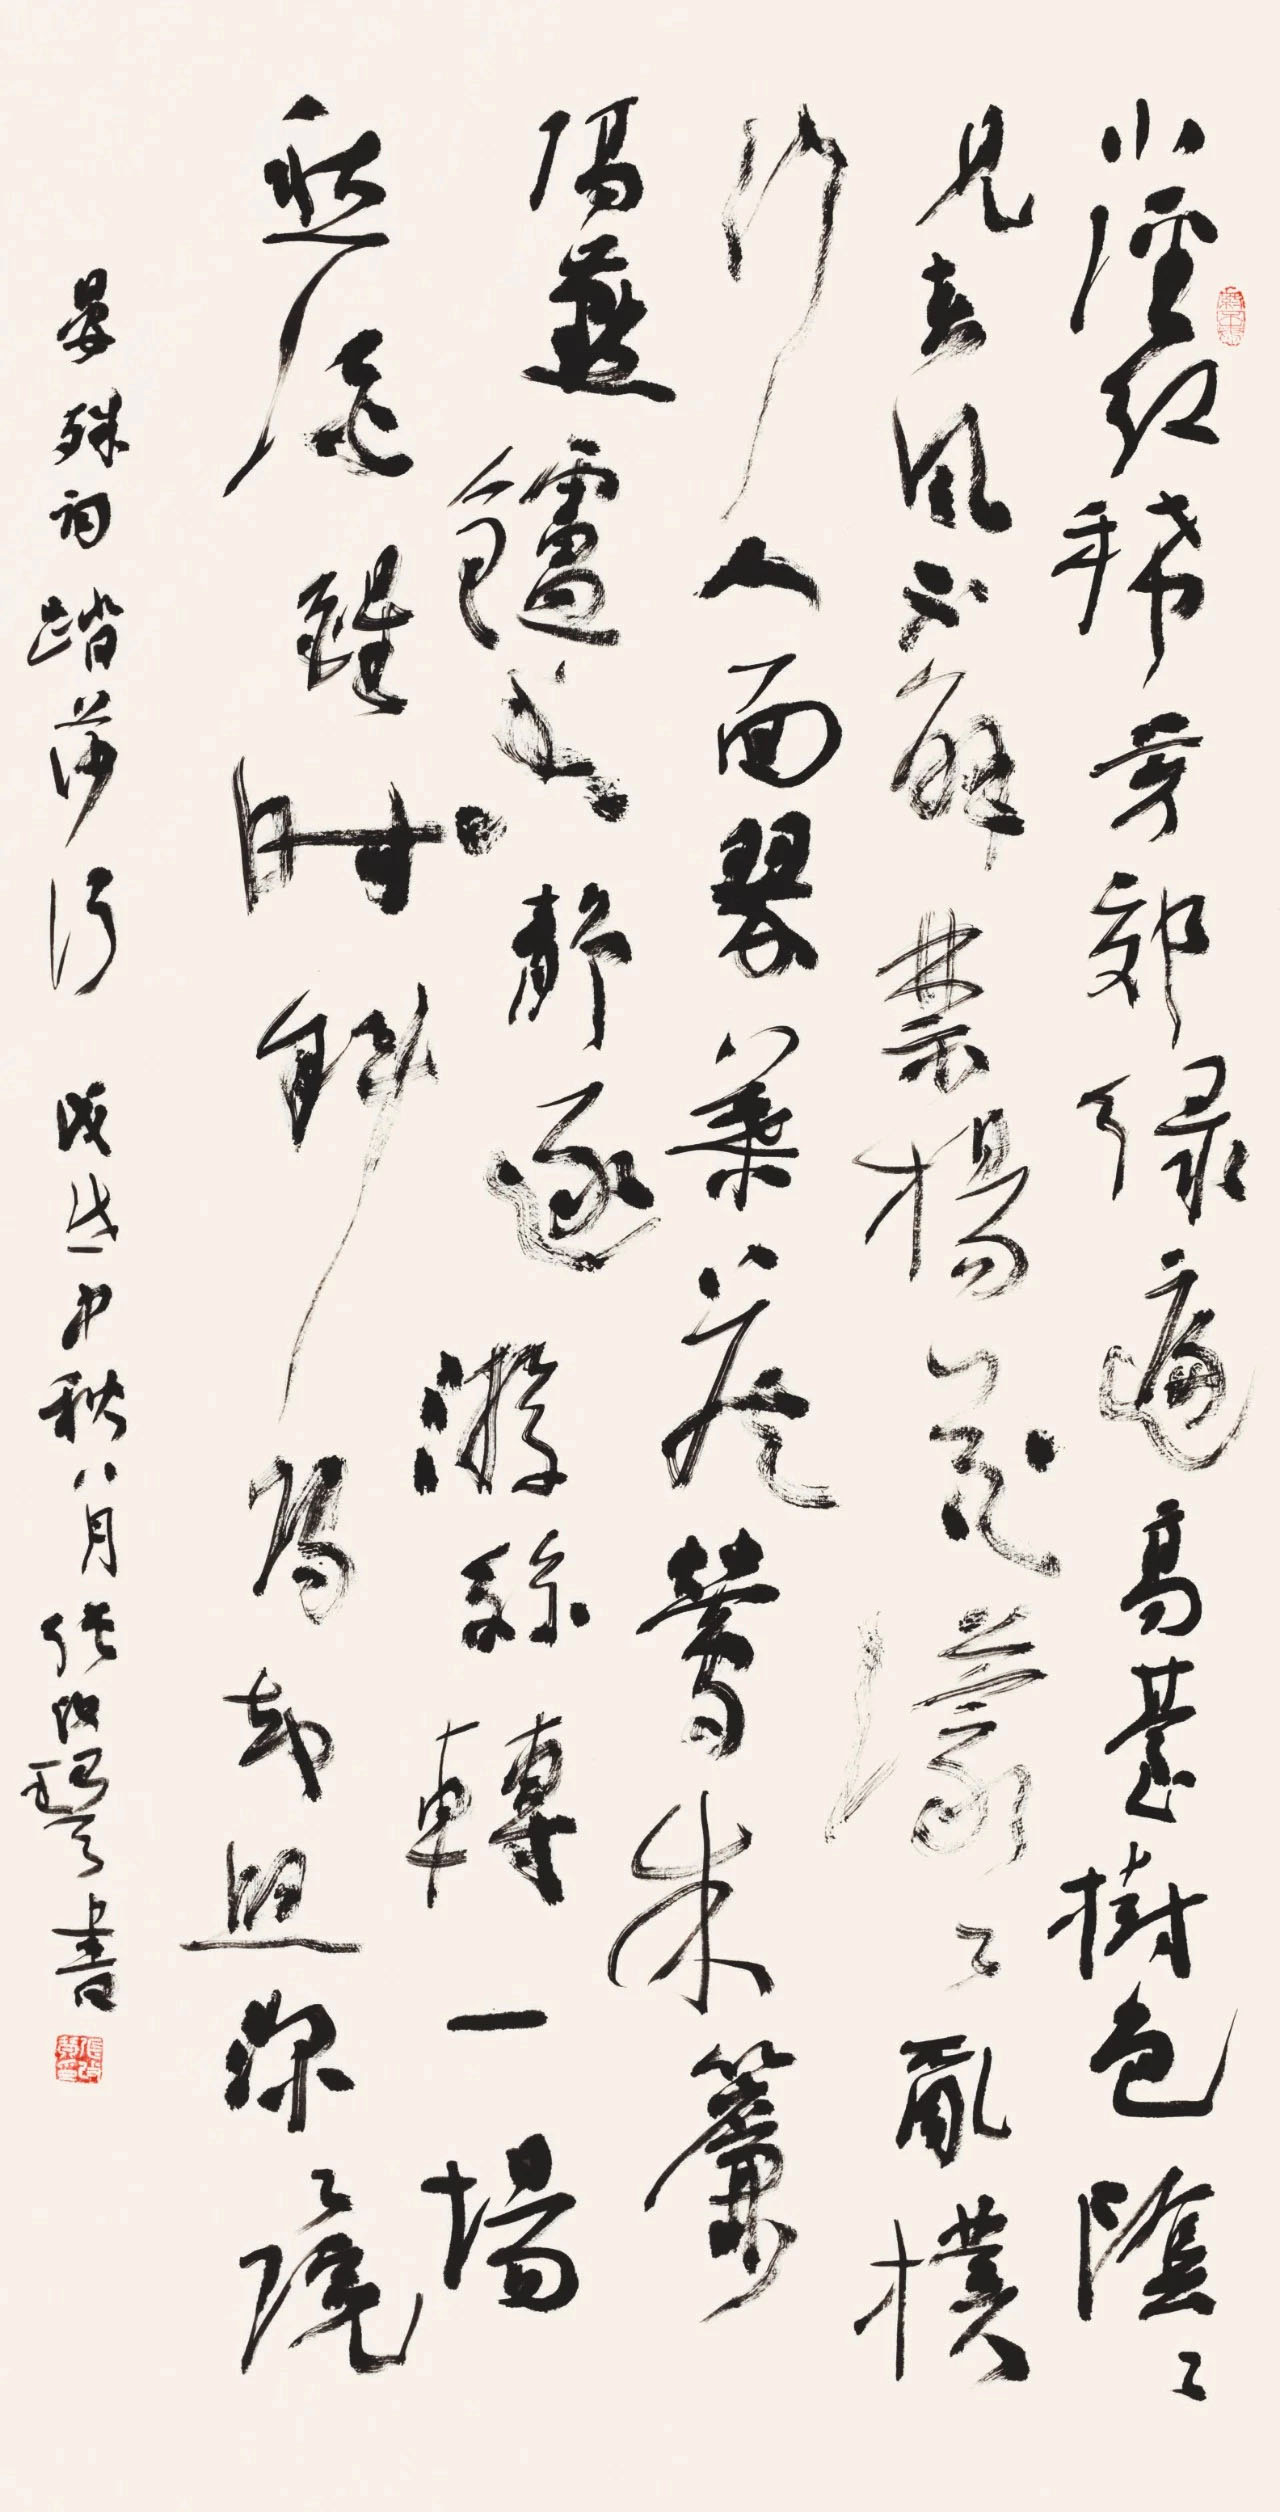 小徑紅稀芳郊綠遍高臺樹色陰〻
見春風不解禁楊花濛〻亂樸
行人面翠葉藏鶯朱簾
隔燕鑪香靜逐游絲轉一場
愁醒時斜陽却照深〻院
晏殊詞踏莎行 戊戌中秋八月張改琴書